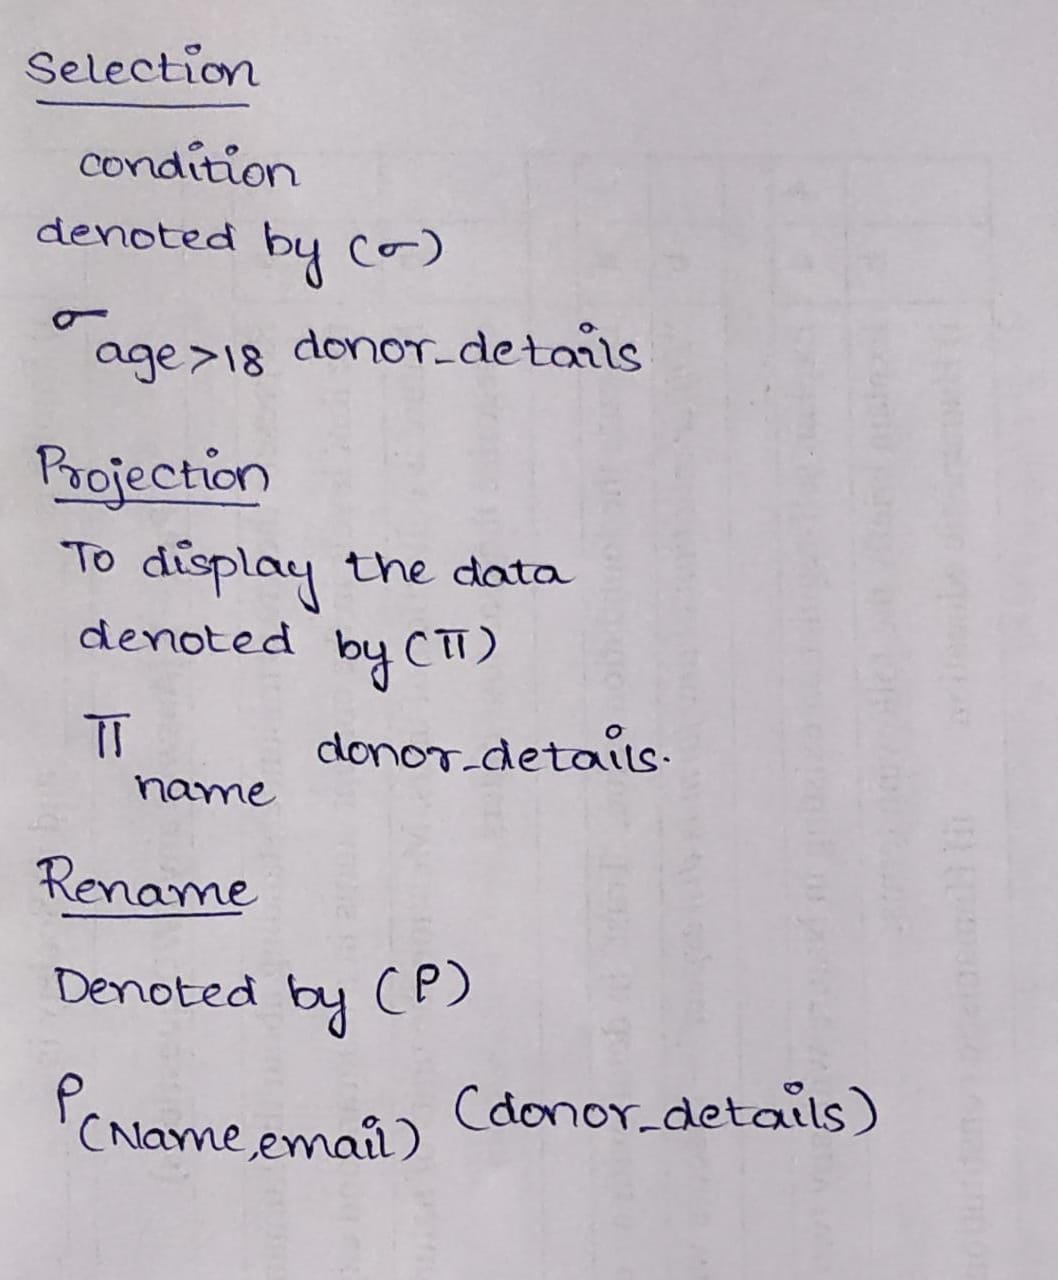 Selection
condition
denoted by (σ)
σ age>18 donor_details
Projection
To display the data
denoted by (π)
π name donor_details.
Rename
Denoted by (ρ)
ρ (Name,email) (donor_details)